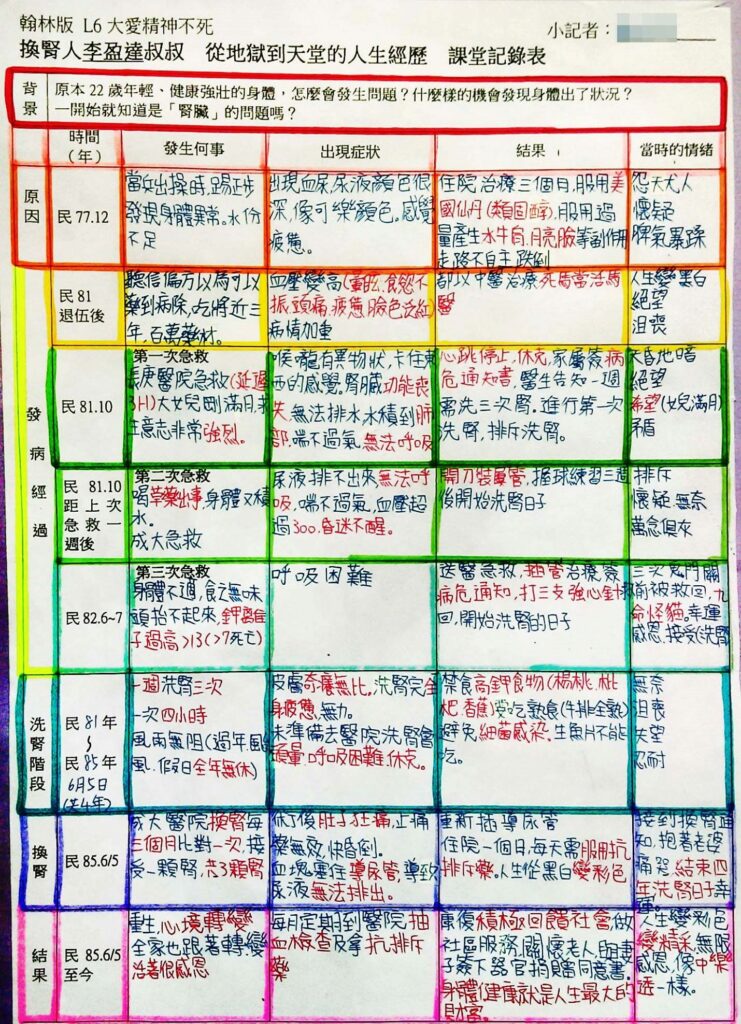 翰林版 L6 大愛精神不死
小記者：
換腎人李盈達叔叔 從地獄到天堂的人生經歷 課堂記錄表
背景
原本 22 歲年輕、健康強壯的身體，怎麼會發生問題？什麼樣的機會發現身體出了狀況？
一開始就知道是「腎臟」的問題嗎？
時間（年）
發生何事
出現症狀
結果
當時的情緒
原因
民 77.12
當兵出操時，踢正步
發現身體異常。水份
不足
出現血尿，尿液顏色很
深，像可樂顏色。感覺
疲憊。
住院治療三個月，服用美
國仙丹(類固醇)，服用過
量產生水牛肩，月亮臉等副作用
走路不自主跌倒
怨天尤人
懷疑
脾氣暴躁
發病經過
民 81
退伍後
聽信偏方以為可以
藥到病除，吃將近三
年，百萬藥材。
血壓變高(暈眩，食慾不
振，頭痛，疲憊，臉色泛紅)
病情加重
都以中醫治療死馬當活馬
醫
人生變黑白
絕望
沮喪
民 81.10
第一次急救
長庚醫院急救(延遲
3H)大女兒剛滿月，求
生意志非常強烈。
喉嚨有異物狀，卡住東
西的感覺。腎臟功能喪
失，無法排水水積到肺
部，喘不過氣，無法呼吸
心跳停止，休克，家屬簽病
危通知書，醫生告知一週
需洗三次腎。進行第一次
洗腎，排斥洗腎。
天昏地暗
絕望
希望(女兒滿月)
矛盾
民 81.10
距上次
急救一
週後
第二次急救
喝草藥出事，身體又積
水。
成大急救
尿液排不出來，無法呼
吸，喘不過氣，血壓超
過300，昏迷不醒。
開刀裝廔管，握球練習三週
後開始洗腎日子
排斥
懷疑，無奈
萬念俱灰
民 82.6~7
第三次急救
身體不適，食之無味
頭抬不起來，鉀離
子過高>13(>7死亡)
呼吸困難
送醫急救，插管治療簽
病危通知，打三支強心針救
回，開始洗腎的日子
三次鬼門關
前被救回，九
命怪貓。幸運
感恩，接受(洗腎)
洗腎階段
民 81 年
~
民 85 年
6月5日
(共4年)
一週洗腎三次
一次四小時
風雨無阻(過年颱
風.假日全年無休)
皮膚奇癢無比。洗腎完全
身疲憊，無力。
未準備去醫院洗腎會
頭暈，呼吸困難，休克。
禁食高鉀食物(楊桃，枇
杷，香蕉)吃熟食(牛排全熟)
避免細菌感染。生魚片不能
吃。
無奈
沮喪
失望
忍耐
換腎
民 85.6/5
成大醫院換腎每
三個月比對一次，接
受一顆腎，共3顆腎
休了後肚子狂痛，止痛
藥無效，快昏倒。
血塊塞住導尿管，導致
尿液無法排出。
重新插導尿管
住院一個月，每天需服用抗
排斥藥。人生從黑白變彩色
接到換腎通
知，抱著老婆
痛哭，結束四
年洗腎日子幸運
結果
民 85.6/5
至今
重生，心境轉變
全家也跟著轉變
活著很感恩
每月定期到醫院抽
血檢查及拿抗排斥
藥
康復積極回饋社會，做
社區服務，關懷老人，與妻
子簽下器官捐贈同意書。
身體健康就是人生最大的
財富。
人生變彩色
變精采，無限
感恩，像中樂
透一樣。